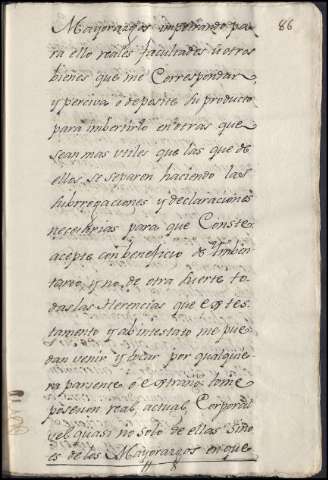 86
Mayorazgos impetrando pa
ra ello reales facultades u otros
bienes que me Correspondan,
y perciva o deposite su producto
para imbertirlo en otras que
sean mas utiles que las que de
ellos se separen haciendo las
subrregaciones y declaraciones
necesarias para que Conste
acepte con beneficio de Imben
tario y no de otra suerte to
das las Herencias que ex tes
tamento y abintestato me pue
dan venir y tocar por qualquie
ra pariente o extraño tome
posesion real, actual, Corporal
vel quasi no solo de ellas sino
es de los Mayorazgos en que